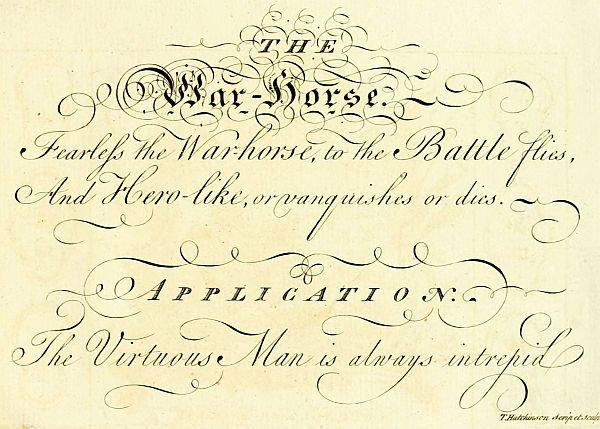 THE
War-Horse.
Fearleſs the War-horse, to the Battle flies,
And Hero-like, or vanquishes or dies.
APPLICATION.
The Virtuous Man is always intrepid
T. Hutchinson Scrip. et Sculp